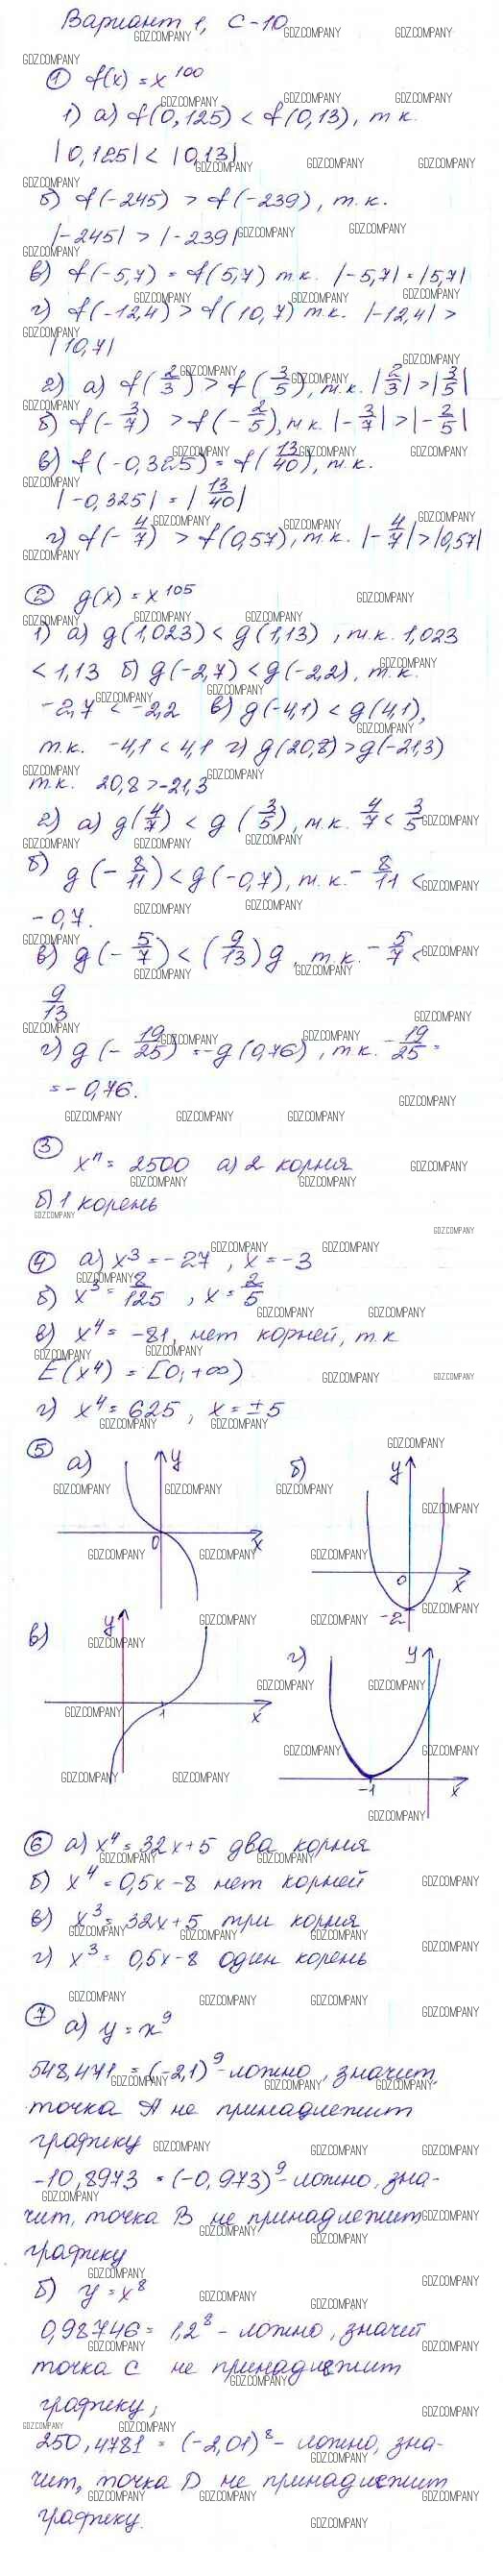 Вариант 1, С-10
① f(x) = x¹⁰⁰
1) а) f(0,125) < f(0,13), т.к.
|0,125| < |0,13|
б) f(-245) > f(-239), т.к.
|-245| > |-239|
в) f(-5,7) = f(5,7) т.к. |-5,7| = |5,7|
г) f(-12,4) > f(10,7) т.к. |-12,4| >
|10,7|
2) а) f(2/3) > f(3/5), т.к. |2/3| > |3/5|
б) f(-3/7) > f(-2/5), т.к. |-3/7| > |-2/5|
в) f(-0,325) = f(13/40), т.к.
|-0,325| = |13/40|
г) f(-4/7) > f(0,57), т.к. |-4/7| > |0,57|
② g(x) = x¹⁰⁵
1) а) g(1,023) < g(1,13), т.к. 1,023
< 1,13 б) g(-2,7) < g(-2,2), т.к.
-2,7 < -2,2 в) g(-4,1) < g(4,1),
т.к. -4,1 < 4,1 г) g(20,8) > g(-21,3)
т.к. 20,8 > -21,3
2) а) g(4/7) < g(3/5), т.к. 4/7 < 3/5
б) g(-8/11) < g(-0,7), т.к. -8/11 <
-0,7.
в) g(-5/7) < (9/13)g, т.к. -5/7 <
9/13
г) g(-19/25) = -g(0,76), т.к. -19/25 =
= -0,76.
③
xⁿ = 2500 а) 2 корня
б) 1 корень
④ а) x³ = -27, x = -3
б) x³ = 8/125, x = 2/5
в) x⁴ = -81, нет корней, т.к
E(x⁴) = [0; +∞)
г) x⁴ = 625, x = ±5
⑤ а) y 0 x б) y 0 x -2
в) y 1 x г) y -1 x
⑥ а) x⁴ = 32x+5 два корня
б) x⁴ = 0,5x-8 нет корней
в) x³ = 32x+5 три корня
г) x³ = 0,5x-8 один корень
⑦ а) y = x⁹
548,471 = (-2,1)⁹ - ложно, значит,
точка A не принадлежит
графику
-10,8973 = (-0,973)⁹ - ложно, зна-
чит, точка B не принадлежит
графику
б) y = x⁸
0,98746 = 1,2⁸ - ложно, значит
точка C не принадлежит
графику;
250,4781 = (-2,01)⁸ - ложно, зна-
чит, точка D не принадлежит
графику.
GDZ.COMPANY